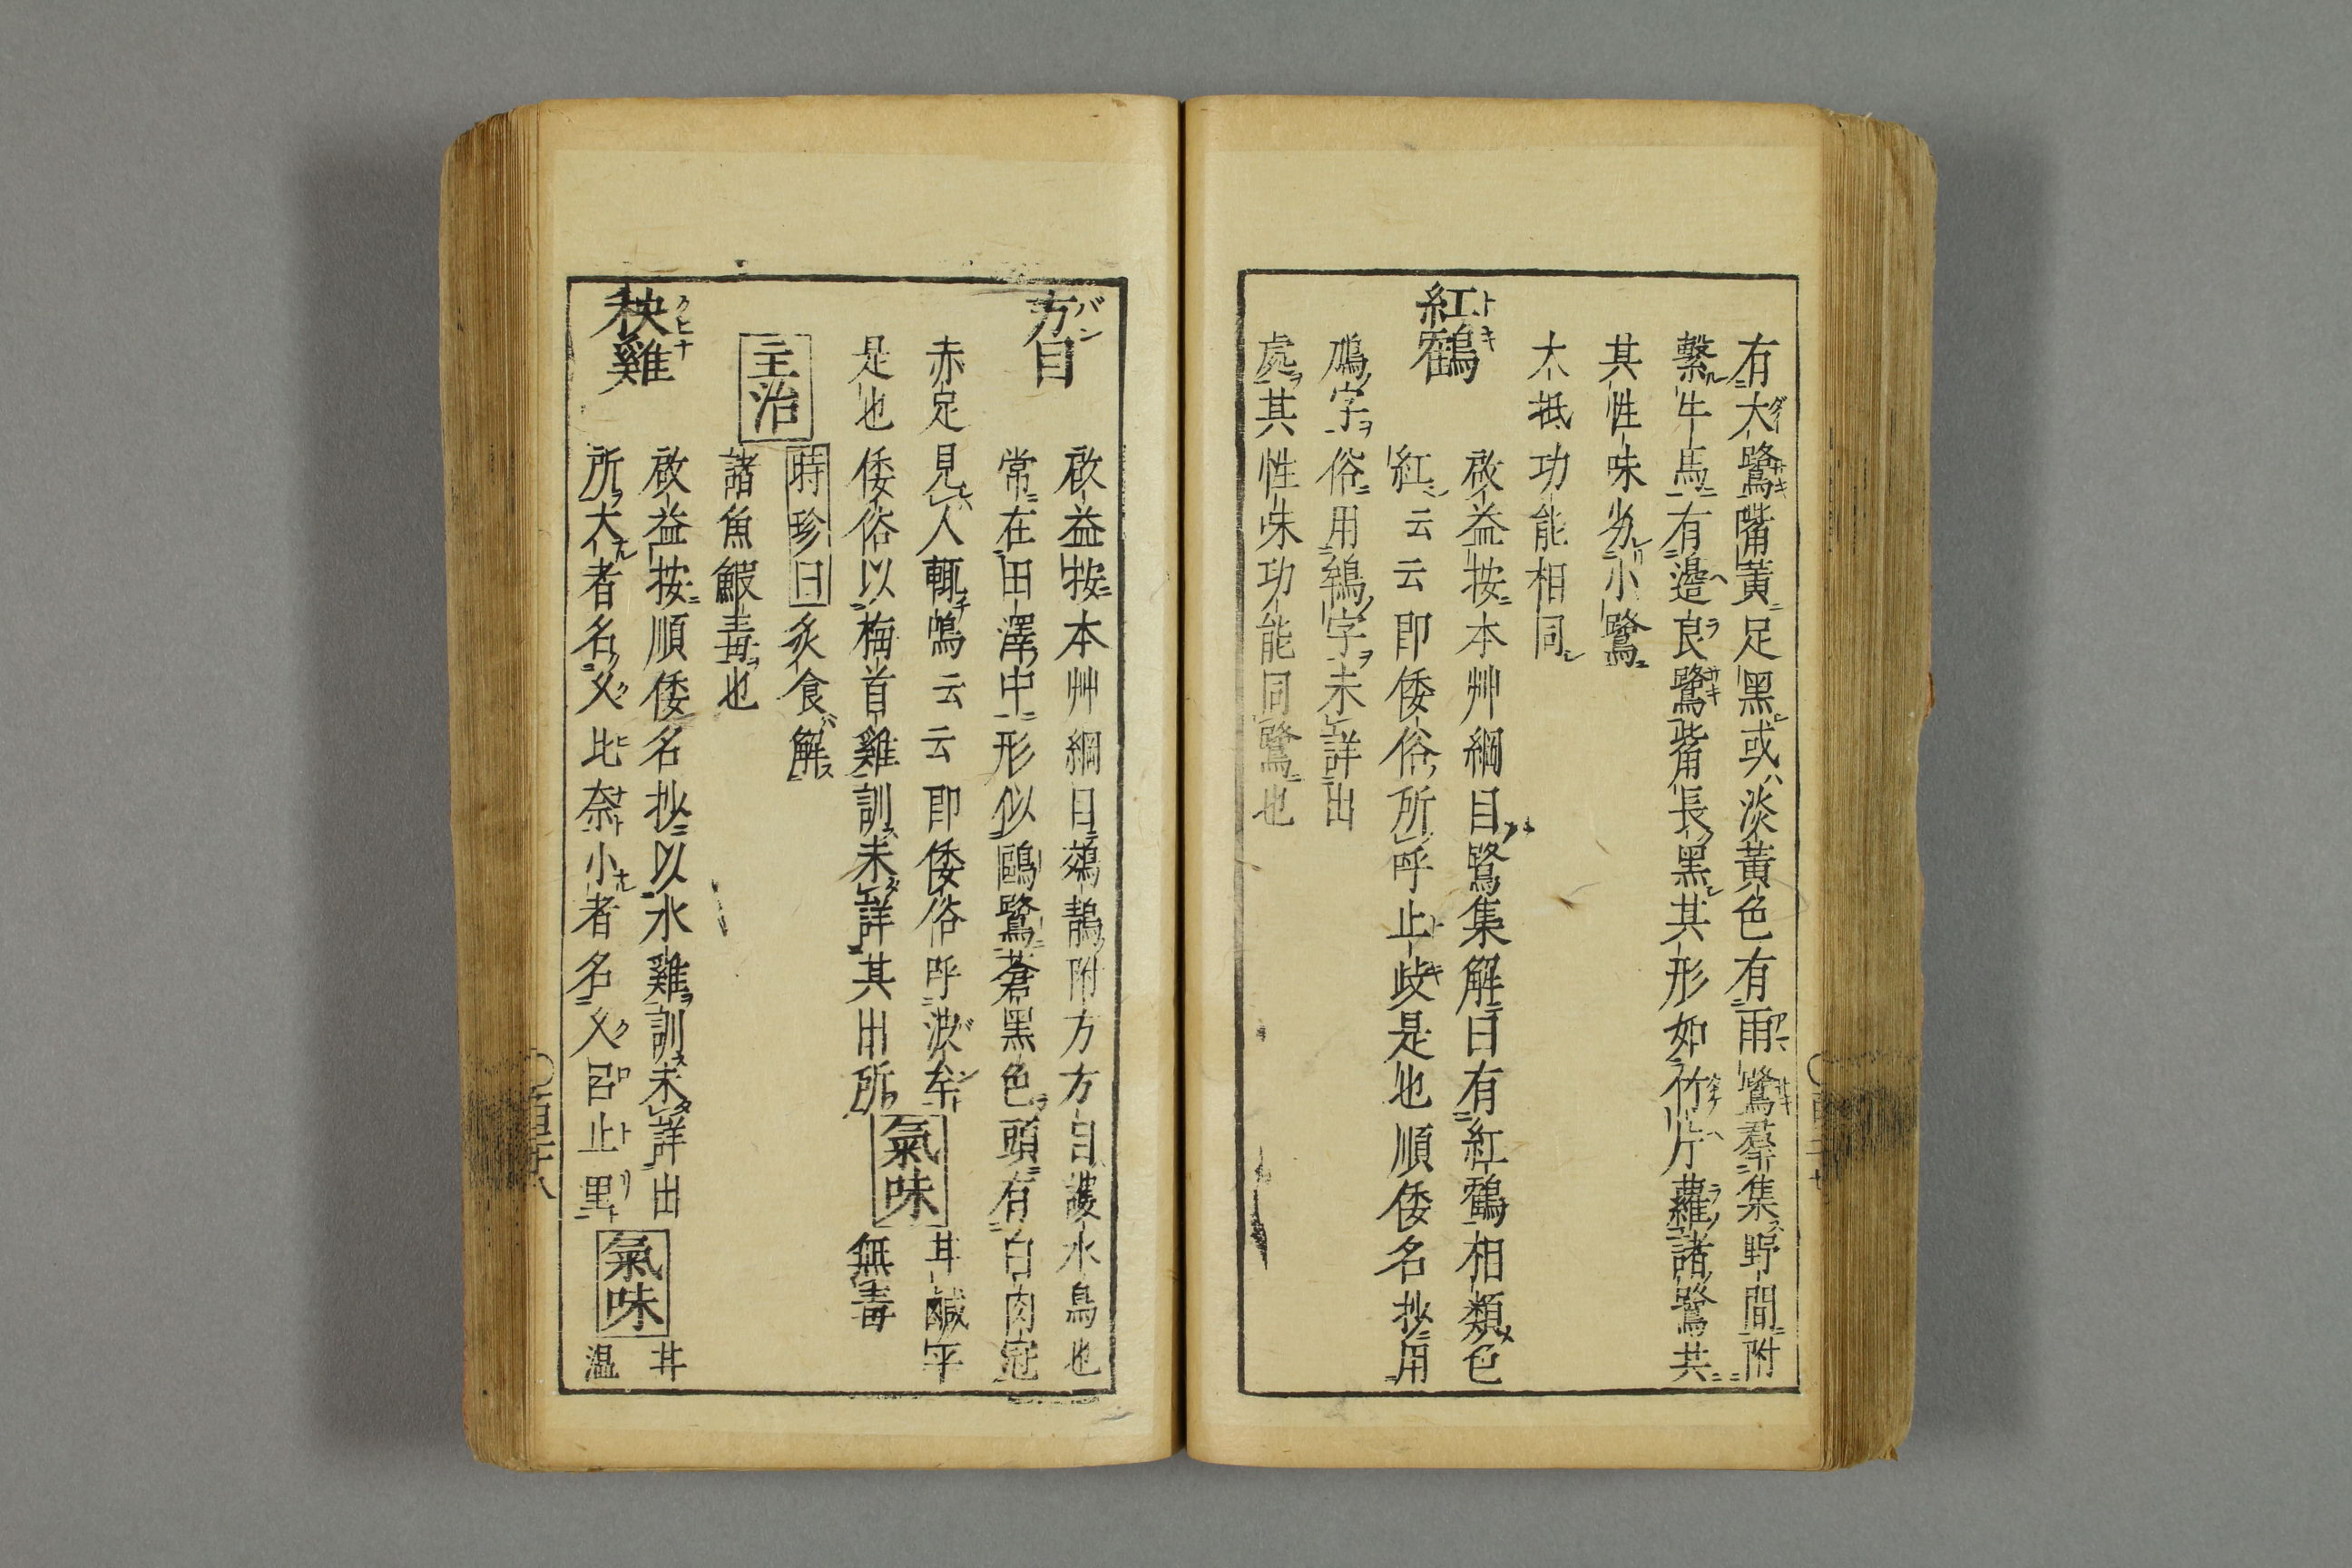 有大鷺嘴黄足黑或淡黄色有雨鷺羣集野間附
繫牛馬有邉良鷺嘴長黑其形如竹片蘿諸鷺共
其性味劣小鷺
大抵功能相同
紅鶴
啟益按本艸綱目鷺集解曰有紅鶴相類色
紅云云即倭俗所呼止岐是也順倭名抄用
鴇字俗用鵇字未詳出
處其性味功能同鷺也
方目
啟益按本艸綱目鵁鶄附方方目護水鳥也
常在田澤中形似鷗鷺蒼黑色頭有白肉冠
赤足見人輒鳴云云即倭俗呼波牟
是也倭俗以梅首雞訓未詳其出所
氣味
甘鹹平
無毒
主治
時珍曰炙食解
諸魚鰕毒也
秧雞
啟益按順倭名抄以水雞訓未詳出
所大者名乂比奈小者名乂呂止里
氣味
甘
温
百廿八